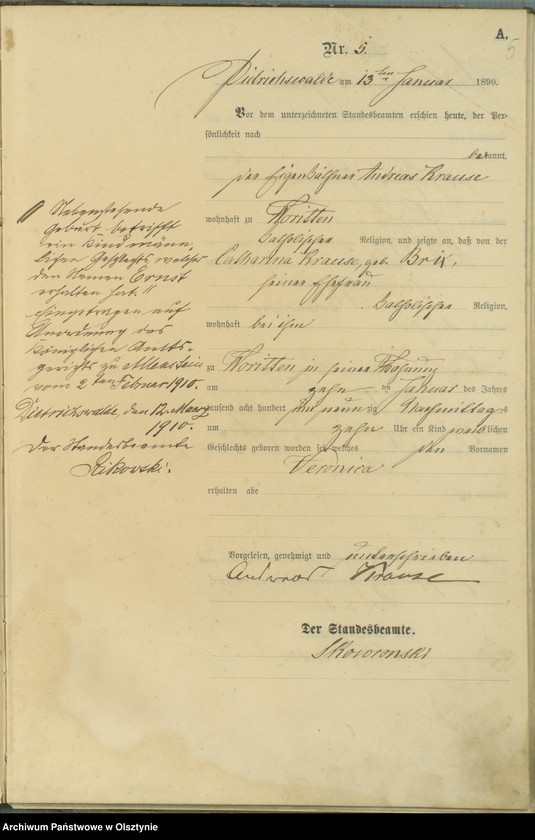 A.
5
Nr. 5.
Dietrichswalde am 13ten Januar 1890.
Vor dem unterzeichneten Standesbeamten erschien heute, der Per-
sönlichkeit nach
bekannt,
der Eigenkäthner Andreas Krause
wohnhaft zu Woritten
katholischer Religion, und zeigte an, daß von der
Catharina Krause, geb. Brix,
seiner Ehefrau
katholischer Religion,
wohnhaft bei ihm
zu Woritten in seiner Wohnung
am zehn ten Januar des Jahres
tausend acht hundert neunzig Nachmittags
um zehn Uhr ein Kind weiblichen
Geschlechts geboren worden sei, welches den Vornamen
Veronica
erhalten habe
Vorgelesen, genehmigt und unterschrieben
Andreas Krause
Der Standesbeamte.
Skowronski
Nebenstehende
Geburt betrifft
ein Kind männ-
lichen Geschlechts, welches
den Namen Ernst
erhalten hat."
Eingetragen auf
Anordnung des
Königlichen Amts-
gerichts zu Allenstein
vom 2ten Februar 1910.
Dietrichswalde, den 12. März
1910.
Der Standesbeamte
Archiwum Państwowe w Olsztynie